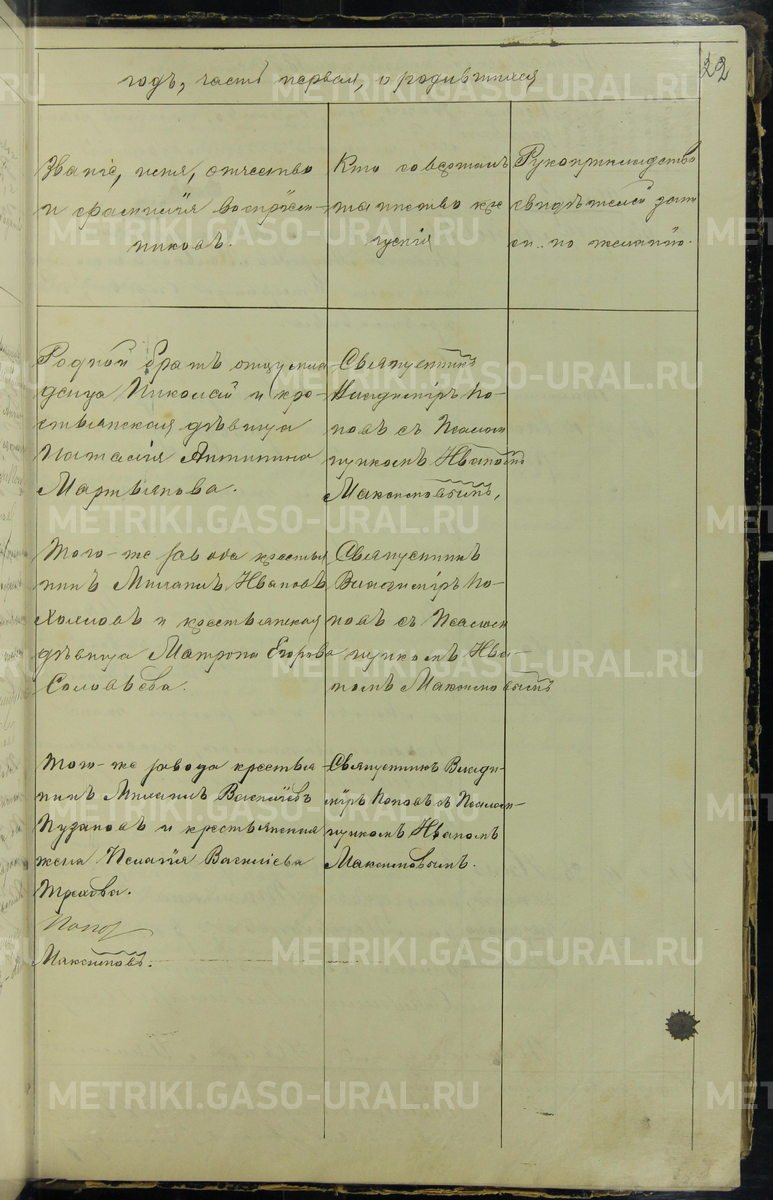 22
годъ, часть первая, о родившихся
Званіе, имя, отчество
и фамилія воспріем-
никовъ.
Кто совершалъ
таинство кре
щенія
Рукоприкладство
свидѣтелей запи
си по желанію.
Родной братъ отцу мла
денца Николай и кре-
стьянская дѣвица
Наталія Антипина
Мартьянова.
Священникъ
Владиміръ По-
повъ съ Псалом
щикомъ Иваномъ
Максимовымъ,
Того-же завода крестья
нинъ Михаилъ Ивановъ
и крестьянская
дѣвица Матрона Егорова
Соловьева.
Священникъ
Владиміръ По-
повъ съ Псалом
щикомъ Ива-
номъ Максимовымъ
Того-же завода крестья
нинъ Михаилъ Васильевъ
Пузановъ и крестьянская
жена Пелагія Василіева
Трехова.
Священникъ Влади-
міръ Поповъ съ Псалом-
щикомъ Иваномъ
Максимовымъ.
Попов
Максимовъ.
METRIKI.GASO-URAL.RU